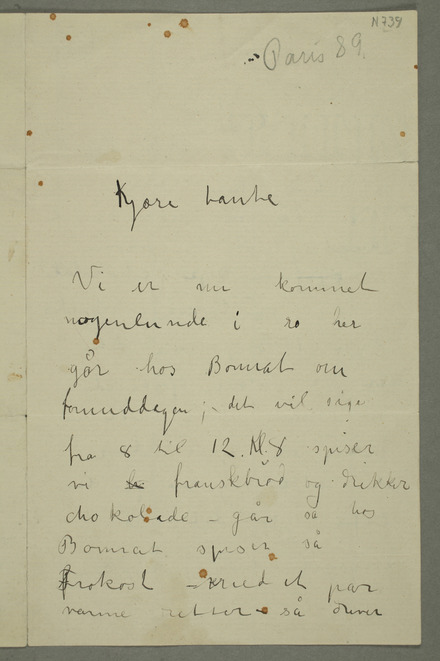 N 739
Paris 89.
Kjære tante
Vi er nu kommet
nogenlunde i ro her
går hos Bonnat om
formiddagen; - det vil sige
fra 8 til 12. Kl. 8 spiser
vi franskbrød og drikker
chokolade - går så hos
Bonnat spiser så
Frokost - med et par
varme retter - så driver